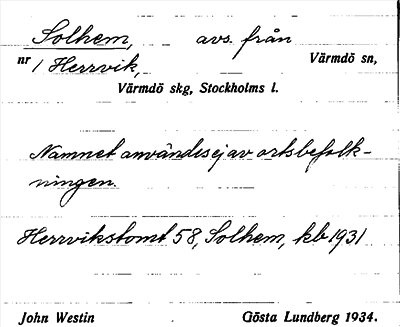 Solhem, avs. från
nr 1 Herrvik, Värmdö sn,
Värmdö skg, Stockholms l.
Namnet användes ej av ortsbefolk-
ningen.
Herrvikstomt 58, Solhem, kb 1931
John Westin Gösta Lundberg 1934.